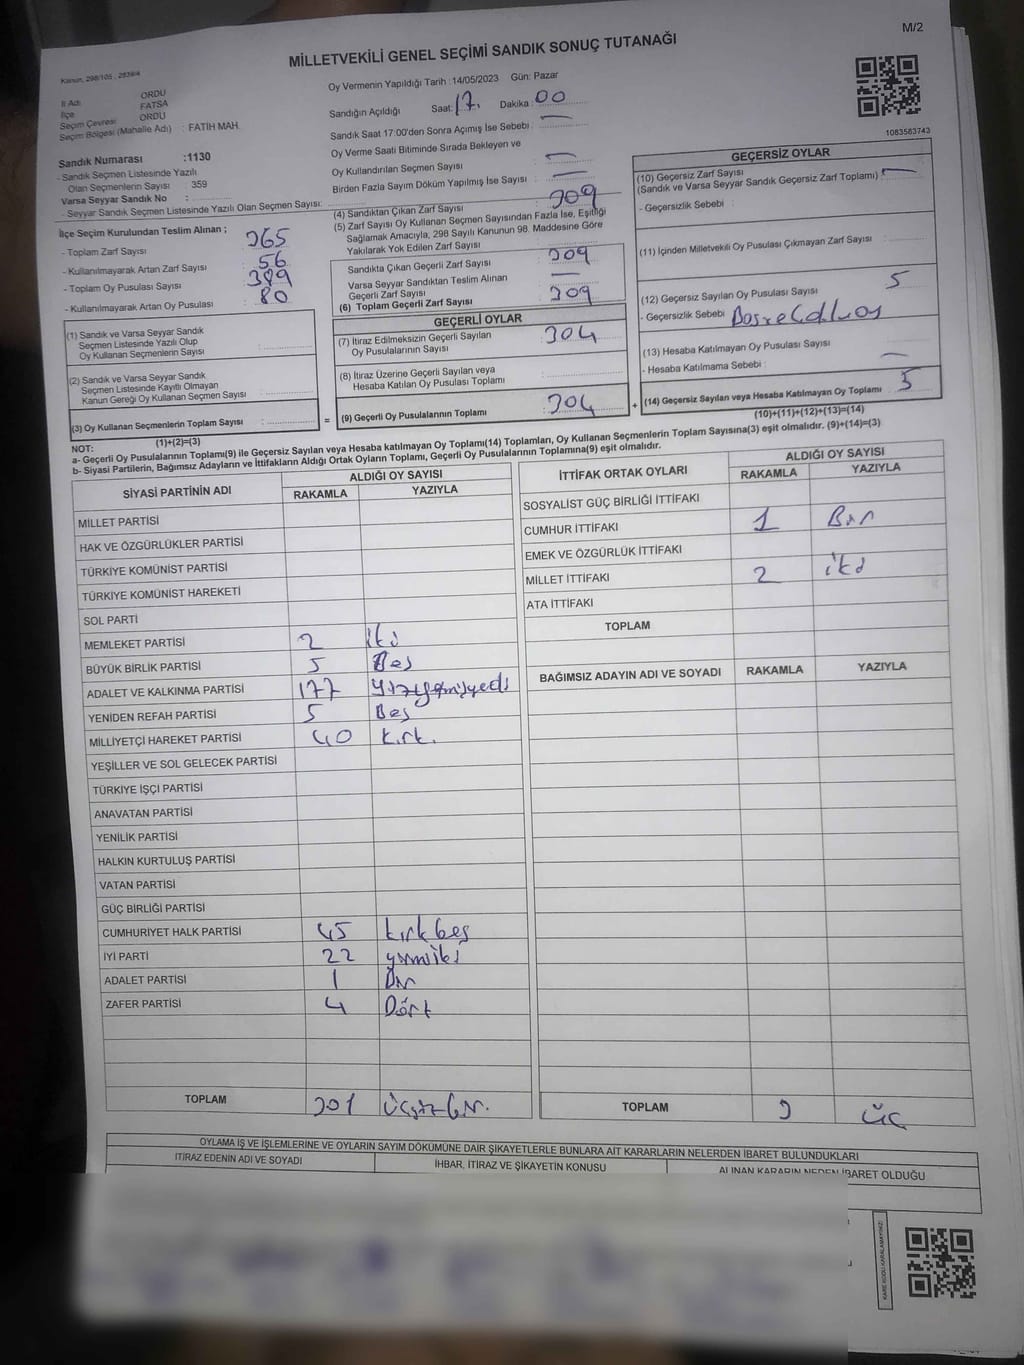 M/2
MİLLETVEKİLİ GENEL SEÇİMİ SANDIK SONUÇ TUTANAĞI
Kanun, 298/105 , 2839/4
İl Adı ORDU
İlçe FATSA
Seçim Çevresi ORDU
Seçim Bölgesi (Mahalle Adı) : FATİH MAH.
Sandık Numarası :1130
- Sandık Seçmen Listesinde Yazılı
Olan Seçmenlerin Sayısı : 359
Varsa Seyyar Sandık No :
- Seyyar Sandık Seçmen Listesinde Yazılı Olan Seçmen Sayısı:
Oy Vermenin Yapıldığı Tarih : 14/05/2023 Gün: Pazar
Sandığın Açıldığı Saat: 17. Dakika : 00
Sandık Saat 17:00'den Sonra Açımış İse Sebebi : —
Oy Verme Saati Bitiminde Sırada Bekleyen ve
Oy Kullandırılan Seçmen Sayısı : —
Birden Fazla Sayım Döküm Yapılmış İse Sayısı : —
1083583743
İlçe Seçim Kurulundan Teslim Alınan ;
- Toplam Zarf Sayısı : 365
- Kullanılmayarak Artan Zarf Sayısı : 56
- Toplam Oy Pusulası Sayısı : 389
- Kullanılmayarak Artan Oy Pusulası : 80
(1) Sandık ve Varsa Seyyar Sandık
Seçmen Listesinde Yazılı Olup
Oy Kullanan Seçmenlerin Sayısı :
(2) Sandık ve Varsa Seyyar Sandık
Seçmen Listesinde Kayıtlı Olmayan
Kanun Gereği Oy Kullanan Seçmen Sayısı :
(3) Oy Kullanan Seçmenlerin Toplam Sayısı :
(1)+(2)=(3)
(4) Sandıktan Çıkan Zarf Sayısı : 309
(5) Zarf Sayısı Oy Kullanan Seçmen Sayısından Fazla İse, Eşitliği
Sağlamak Amacıyla, 298 Sayılı Kanunun 98. Maddesine Göre
Yakılarak Yok Edilen Zarf Sayısı :
Sandıkta Çıkan Geçerli Zarf Sayısı : 309
Varsa Seyyar Sandıktan Teslim Alınan
Geçerli Zarf Sayısı : —
(6) Toplam Geçerli Zarf Sayısı : 309
GEÇERLİ OYLAR
(7) İtiraz Edilmeksizin Geçerli Sayılan
Oy Pusulalarının Sayısı : 304
(8) İtiraz Üzerine Geçerli Sayılan veya
Hesaba Katılan Oy Pusulası Toplamı :
= (9) Geçerli Oy Pusulalarının Toplamı : 304
GEÇERSİZ OYLAR
(10) Geçersiz Zarf Sayısı
(Sandık ve Varsa Seyyar Sandık Geçersiz Zarf Toplamı) : —
- Geçersizlik Sebebi :
(11) İçinden Milletvekili Oy Pusulası Çıkmayan Zarf Sayısı :
(12) Geçersiz Sayılan Oy Pusulası Sayısı : 5
- Geçersizlik Sebebi :
(13) Hesaba Katılmayan Oy Pusulası Sayısı : —
- Hesaba Katılmama Sebebi :
+ (14) Geçersiz Sayılan veya Hesaba Katılmayan Oy Toplamı : 5
(10)+(11)+(12)+(13)=(14)
NOT:
a- Geçerli Oy Pusulalarının Toplamı(9) ile Geçersiz Sayılan veya Hesaba katılmayan Oy Toplamı(14) Toplamları, Oy Kullanan Seçmenlerin Toplam Sayısına(3) eşit olmalıdır. (9)+(14)=(3)
b- Siyasi Partilerin, Bağımsız Adayların ve İttifakların Aldığı Ortak Oyların Toplamı, Geçerli Oy Pusulalarının Toplamına(9) eşit olmalıdır.
SİYASİ PARTİNİN ADI ALDIĞI OY SAYISI
RAKAMLA YAZIYLA
MİLLET PARTİSİ
HAK VE ÖZGÜRLÜKLER PARTİSİ
TÜRKİYE KOMÜNİST PARTİSİ
TÜRKİYE KOMÜNİST HAREKETİ
SOL PARTİ
MEMLEKET PARTİSİ 2 iki
BÜYÜK BİRLİK PARTİSİ 5 Beş
ADALET VE KALKINMA PARTİSİ 177
YENİDEN REFAH PARTİSİ 5 Beş
MİLLİYETÇİ HAREKET PARTİSİ 40 Kırk.
YEŞİLLER VE SOL GELECEK PARTİSİ
TÜRKİYE İŞÇİ PARTİSİ
ANAVATAN PARTİSİ
YENİLİK PARTİSİ
HALKIN KURTULUŞ PARTİSİ
VATAN PARTİSİ
GÜÇ BİRLİĞİ PARTİSİ
CUMHURİYET HALK PARTİSİ 45 kırkbeş
İYİ PARTİ 22 yirmiiki
ADALET PARTİSİ 1 Bir
ZAFER PARTİSİ 4 Dört
TOPLAM 301 üçyüzbir.
İTTİFAK ORTAK OYLARI ALDIĞI OY SAYISI
RAKAMLA YAZIYLA
SOSYALİST GÜÇ BİRLİĞİ İTTİFAKI
CUMHUR İTTİFAKI 1 Bir
EMEK VE ÖZGÜRLÜK İTTİFAKI
MİLLET İTTİFAKI 2 iki
ATA İTTİFAKI
TOPLAM
BAĞIMSIZ ADAYIN ADI VE SOYADI RAKAMLA YAZIYLA
TOPLAM 3 üç
OYLAMA İŞ VE İŞLEMLERİNE VE OYLARIN SAYIM DÖKÜMÜNE DAİR ŞİKAYETLERLE BUNLARA AİT KARARLARIN NELERDEN İBARET BULUNDUKLARI
İTİRAZ EDENİN ADI VE SOYADI İHBAR, İTİRAZ VE ŞİKAYETİN KONUSU ALINAN KARARIN NEDEN İBARET OLDUĞU
KARE KODU KARALAMAYINIZ!